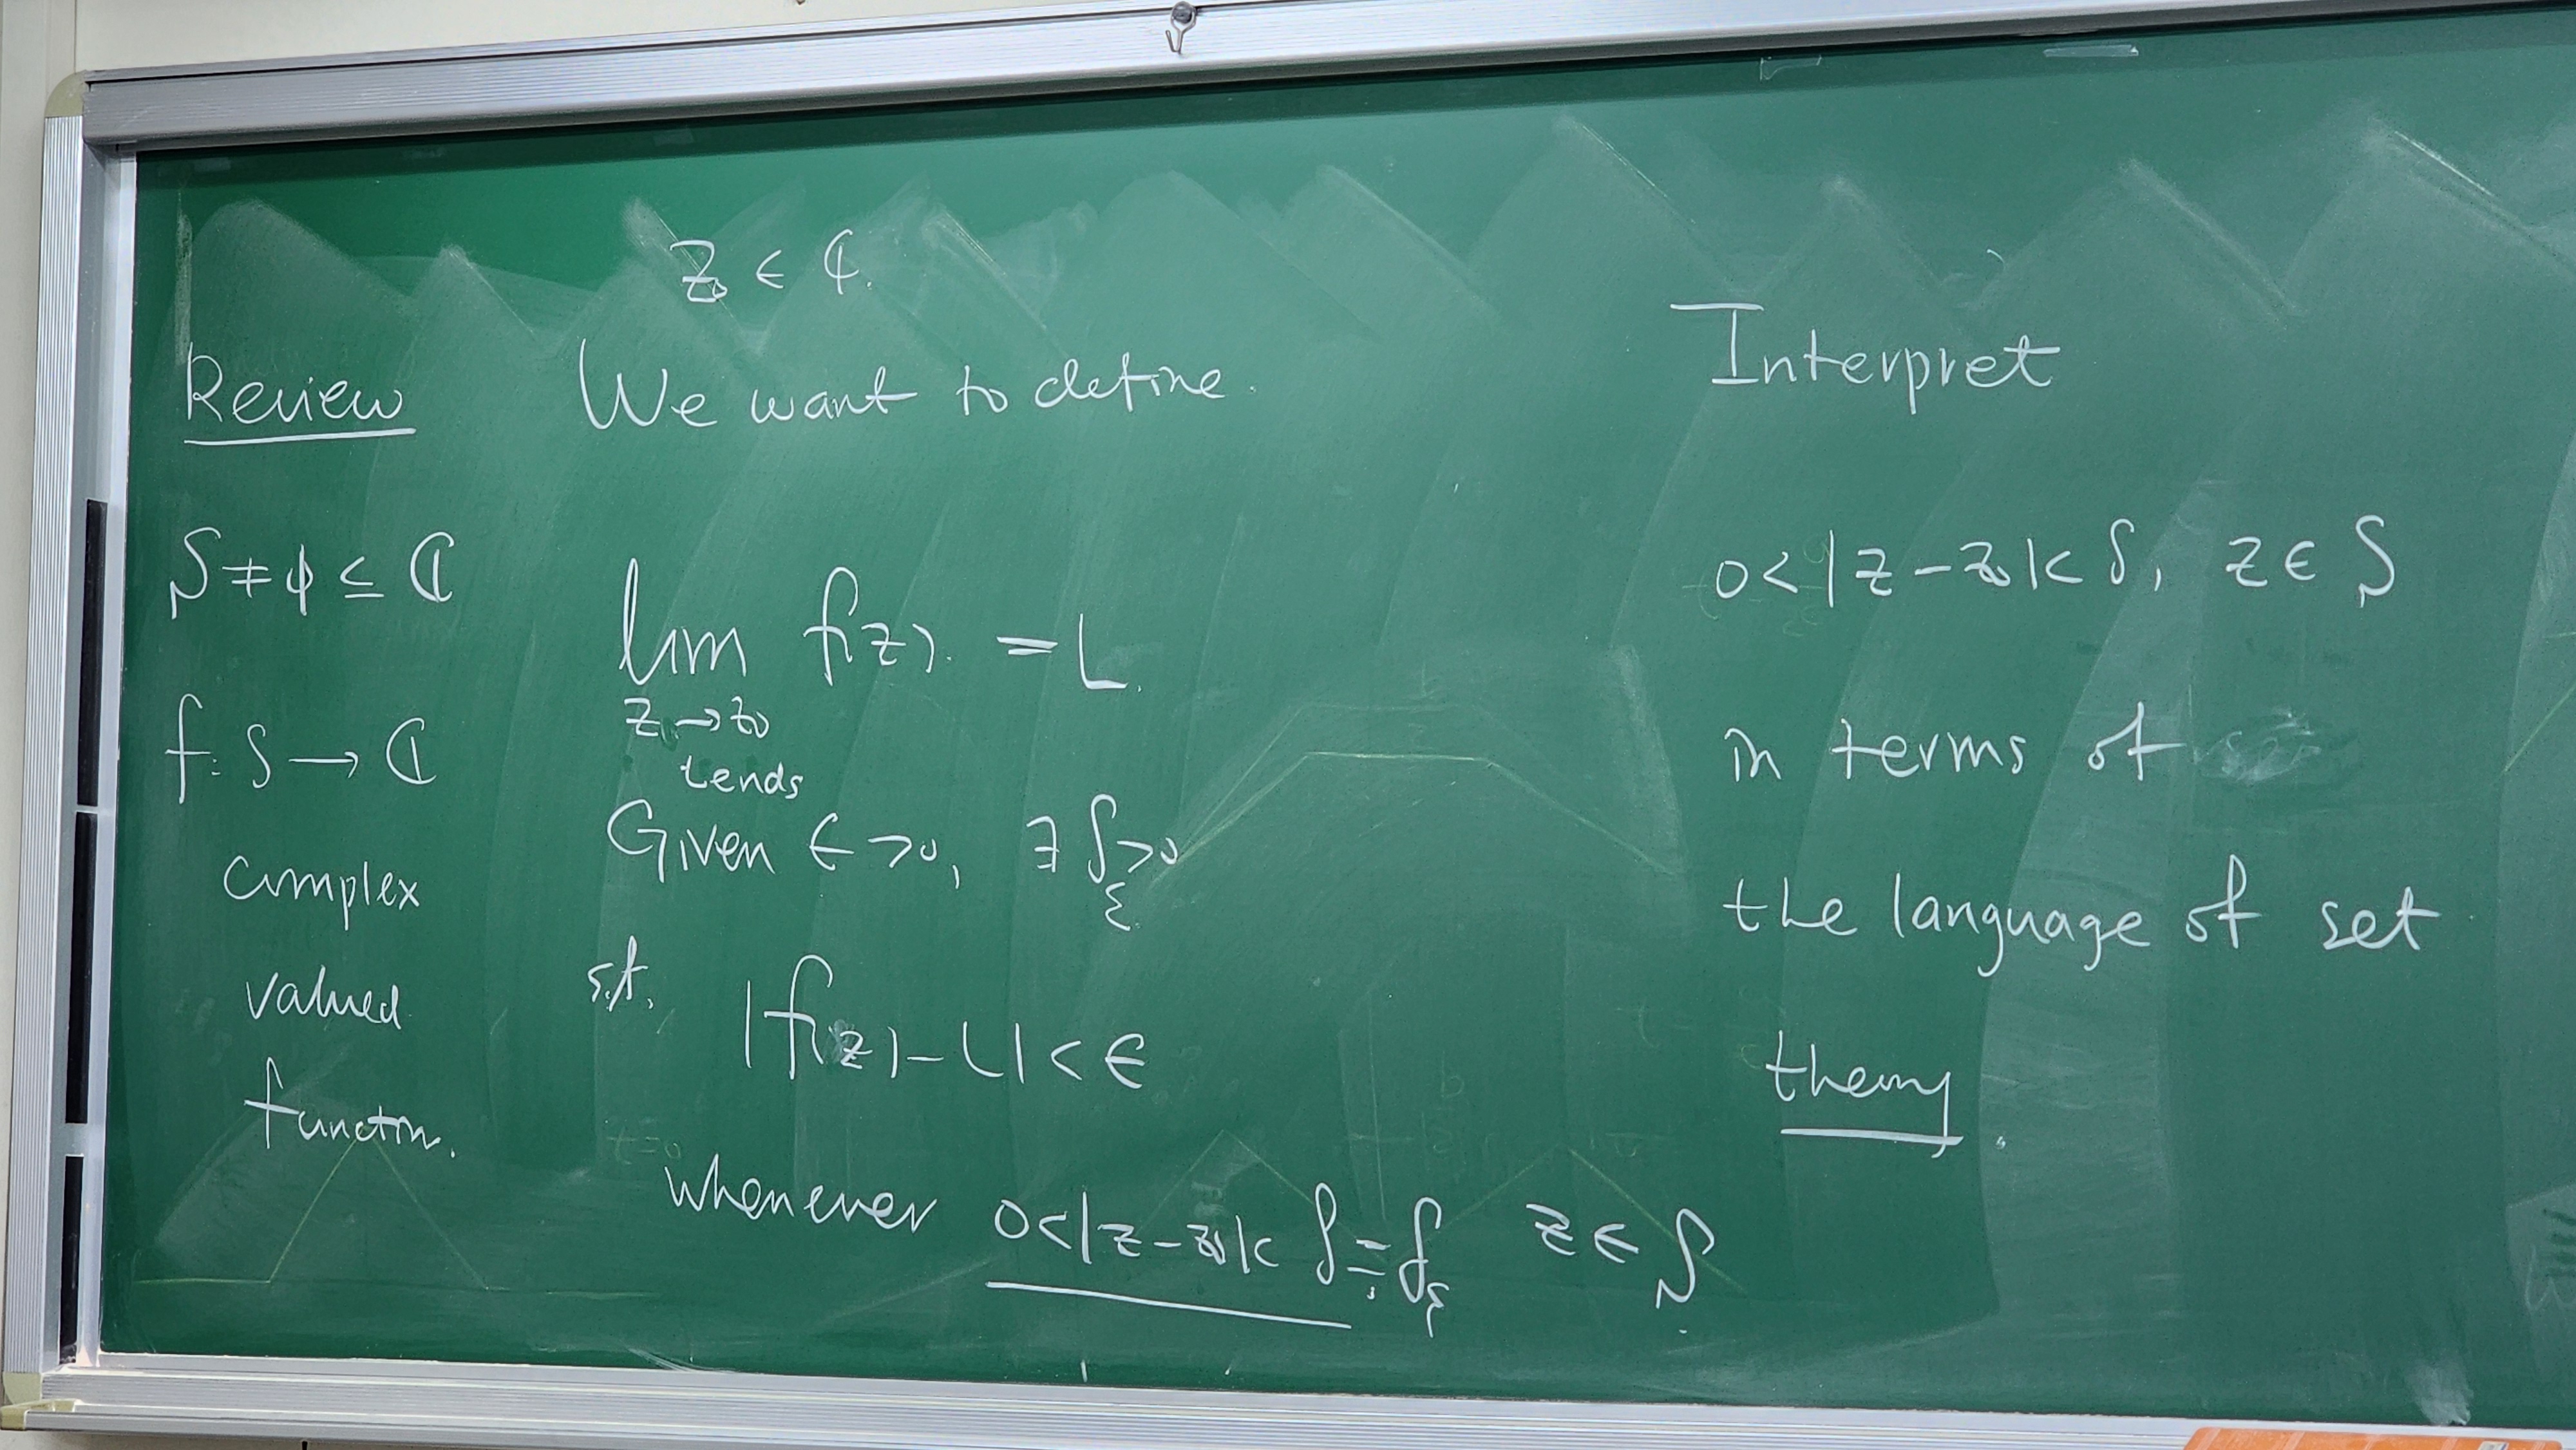 Review
S ≠ ϕ ⊆ ℂ
f: S → ℂ
complex
valued
function.
z₀ ∈ ℂ.
We want to define.
lim f(z). = L.
z → z₀
tends
Given ϵ >0, ∃ δ_ε >0
s.t. |f(z) - L| < ϵ
whenever 0<|z-z₀|< δ = δ_ε z ∈ S
Interpret
0<|z-z₀|< δ, z ∈ S
in terms of
the language of set
theory.